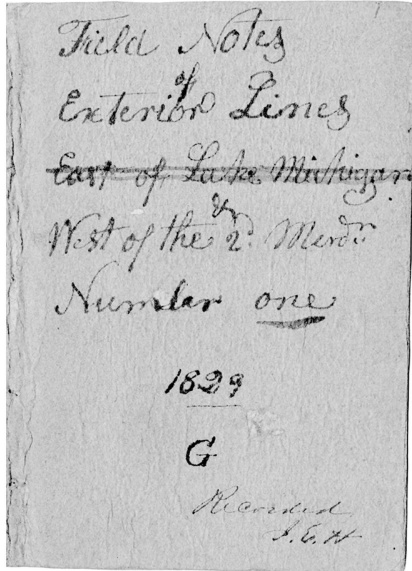 Field Notes
of
Exterior Lines
East of Lake Michigan
&
West of the 2d. Merdn
Number one
1829
G
Recorded
J.E.H